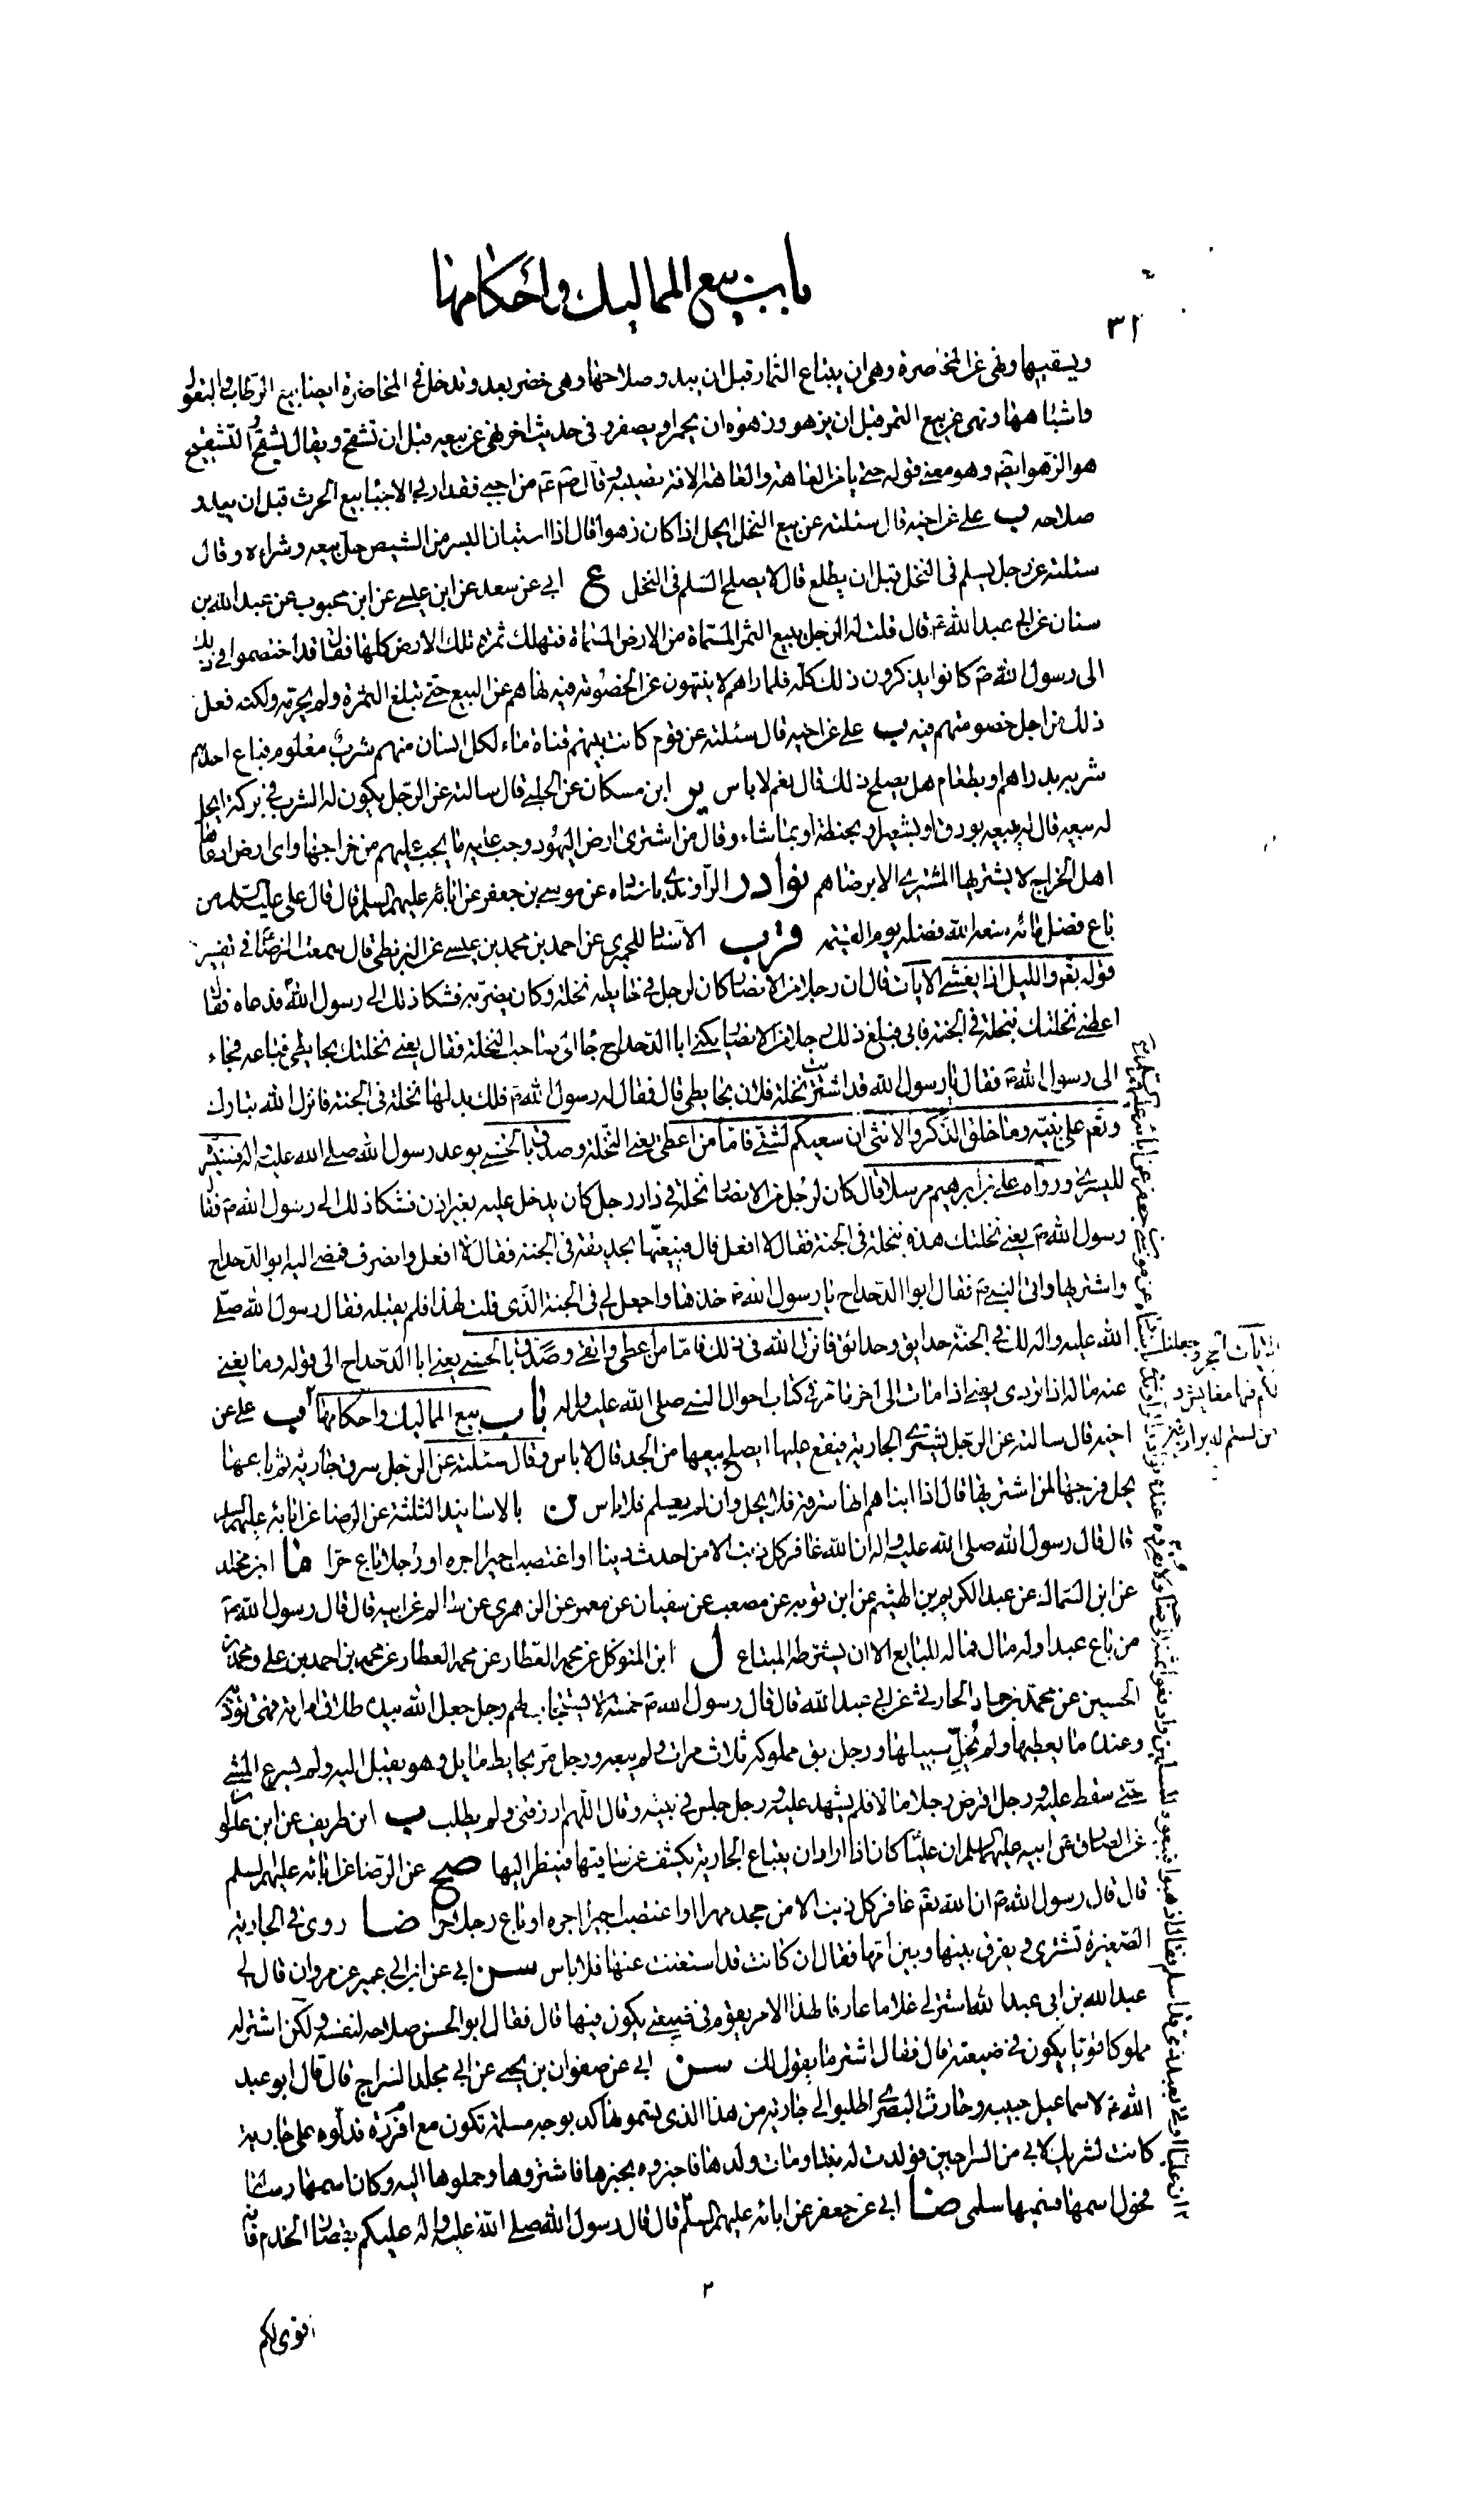 باب بيع المماليك واحكامها
٣١
ويسقيها ونهى عن المخاضرة وهى ان يبتاع الثمار قبل ان يبدو صلاحها وهى خضر بعد وتدخل فى المخاضرة ايضا بيع الرطاب والبقول
واشباهها ونهى عن بيع التمر قبل ان يزهو وزهوه ان يحمر او يصفر و فى حديث اخر نهى عن بيعه قبل ان تشقح ويقال يشقح والتشقيح
هو الزهو ايضا وهو معنى قوله حتى يامن العاهة والعاهة الافة تصيبه وقال ص ع من اجبى فقد اربى الاجبا بيع الحرث قبل ان يبدو
صلاحه ب على عن اخيه قال سئلته عن بيع النخل ايحل اذا كان زهوا قال اذا استبان البسر من الشيص حل بيعه وشراءه وقال
سئلته عن رجل يسلم فى النخل قبل ان يطلع قال لا يصلح السلم فى النخل ع ابى عن سعد عن ابن عيسى عن ابن محبوب عن عبد الله بن
سنان عن ابى عبد الله ع قال قلت له الرجل يبيع الثمر المسماة من الارض المسماة فتهلك ثمرة تلك الارض كلها فقال قد اختصموا فى ذلك
الى رسول الله ص كانوا يذكرون ذلك كله فلما راهم لا ينتهون عن الخصومة فيه نهاهم عن البيع حتى تبلغ الثمرة ولم يحرمه ولكنه فعل
ذلك من اجل خصومتهم فيه ب على عن اخيه قال سئلته عن قوم كانت بينهم قناة ماء لكل انسان منهم شرب معلوم فباع احدهم
شربه بدراهم او بطعام هل يصلح ذلك قال نعم لا باس ير ابن مسكان عن الحلبى قال سالته عن الرجل يكون له الشرب فى بركة ايحل
له بيعه قال له يبيعه بورق او بشعير او بحنطة او بما شاء وقال من اشترى ارض اليهود وجب عليه ما يجب عليهم من خراجها واى ارض ادعاها
اهل الخراج لا يشتريها المشترى الا برضاهم نوادر الراوندى باسناده عن موسى بن جعفر عن ابائه عليهم السلم قال قال على عليه السلم من
باع فضل مائه منعه الله فضله يوم القيمة قرب الاسناد للحميرى عن احمد بن محمد بن عيسى عن البزنطى قال سمعت الرضا ع فى تفسير
قوله تعم والليل اذا يغشى الايات قال ان رجلا من الانصار كان لرجل فى حايطه نخلة وكان يضر به فشكا ذلك الى رسول الله ص فدعاه فقال
اعطنى نخلتك بنخلة فى الجنة فابى فبلغ ذلك رجلا من الانصار يكنى ابا الدحداح جاء الى صاحب النخلة فقال بعنى نخلتك بحايطى فباعه فجاء
الى رسول الله ص فقال يا رسول الله قد اشتريت نخلة فلان بحايطى قال فقال له رسول الله ص فلك بدلها نخلة فى الجنة فانزل الله تبارك
وتعم على نبيه وما خلق الذكر والانثى ان سعيكم لشتى فاما من اعطى يعنى النخلة وصدق بالحسنى بوعد رسول الله صلى الله عليه واله فسنيسره
لليسرى ورواه على بن ابرهيم مرسلا قال كان لرجل من الانصار نخلة فى دار رجل كان يدخل عليه بغير اذن فشكا ذلك الى رسول الله ص فقال
رسول الله ص بعنى نخلتك هذه بنخلة فى الجنة فقال لا افعل قال فبعنيها بحديقة فى الجنة فقال لا افعل وانصرف فمضى اليه ابو الدحداح
واشتريها واتى النبى ص فقال ابو الدحداح يا رسول الله ص خذها واجعل لى فى الجنة الذى قلت لهذا فلم يقبله فقال رسول الله صلى
الله عليه واله لك فى الجنة حدايق وحدائق فانزل الله فى ذلك فاما من اعطى واتقى وصدق بالحسنى يعنى ابا الدحداح الى قوله وما يغنى
عنه ماله اذا تردى يعنى اذا مات الى اخر ما مر فى كتاب احوال النبى صلى الله عليه واله باب بيع المماليك واحكامها ب على عن
اخيه قال سالته عن الرجل يشترى الجارية فيقع عليها ايصلح بيعها من الجد قال لا باس وقال سئلته عن الرجل سرق جارية ثم باعها
يحل فرجها لمن اشتريها قال اذا انباهم انها سرقة فلا يحل وان لم يعلم فلا باس ن بالاسانيد الثلثة عن الرضا عن ابائه عليهم السلم
قال قال رسول الله صلى الله عليه واله ان الله غافر كل ذنب الا من احدث دينا او اغتصب اجيرا اجره او رجلا باع حرا ما ابن مخلد
عن ابن السماك عن عبد الكريم بن الهيثم عن ابن توبه عن مصعب عن سفيان عن معمر عن الزهرى عن سالم عن ابيه قال قال رسول الله ص
من باع عبدا وله مال فماله للبايع الا ان يشترطه المبتاع ل ابن المتوكل عن محمد العطار عن محمد العطار عن محمد بن احمد بن على ومحمد بن
الحسين عن محمد بن حماد الحارثى عن ابى عبد الله قال قال رسول الله ص خمسة لا يستجاب لهم رجل جعل الله بيده طلاق امراته فهى توذيه
وعنده ما يعطيها ولم يخل سبيلها ورجل بق مملوكه ثلاث مرات ولم يبعه ورجل مر بحايط مايل وهو يقبل اليه ولم يسرع المشى
حتى سقط عليه ورجل اقرض رجلا مالا فلم يشهد عليه ورجل جلس فى بيته وقال اللهم ارزقنى ولم يطلب ب ابن طريف عن ابن علوان
عن الصادق عن ابيه عليهما السلم ان عليا كان اذا اراد ان يبتاع الجارية يكشف عن ساقيها فينظر اليها صح عن الرضا عن ابائه عليهم السلم
قال قال رسول الله ص ان الله تعم غافر كل ذنب الا من جحد مهرا او اغتصب اجيرا اجره او باع رجلا حرا ضا روى فى الجارية
الصغيرة تشترى ويفرق بينها وبين امها فقال ان كانت قد استغنت عنها فلا باس سن ابى عن ابن ابى عمير عن مروان قال لى
عبد الله بن ابى عبد الله اشتر لى غلاما عارفا لهذا الامر يقوم فى ضيعتى يكون فيها قال فقال ابو الحسن صلاحه لنفسه ولكن اشتر له
مملوكا قويا يكون فى ضيعته قال فقال اشتر ما يقول لك سن ابى عن صفوان بن يحيى عن ابى مخلد السراج قال قال ابو عبد
الله ع لاسماعيل حبيبه وحارث البصرى اطلبوا لى جارية من هذا الذى يسمونها كدبوجه مسلمة تكون مع ام فروة فدلوه على جارية
كانت لشريك لابى من السراجين فولدت له بنتا ومات ولدها فاخبروه بخبرها فاشتروها وحملوها اليه وكان اسمها رسالة
فحول اسمها فسميها سلمى ضا ابى عن جعفر عن ابائه عليهم السلم قال قال رسول الله صلى الله عليه واله عليكم بقصار الخدم فانه
٣
اقوى لكم